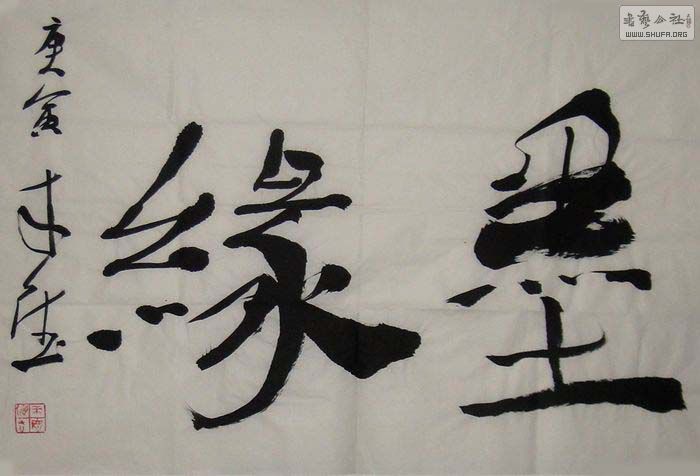 墨緣
庚寅
書藝公社
WWW.SHUFA.ORG